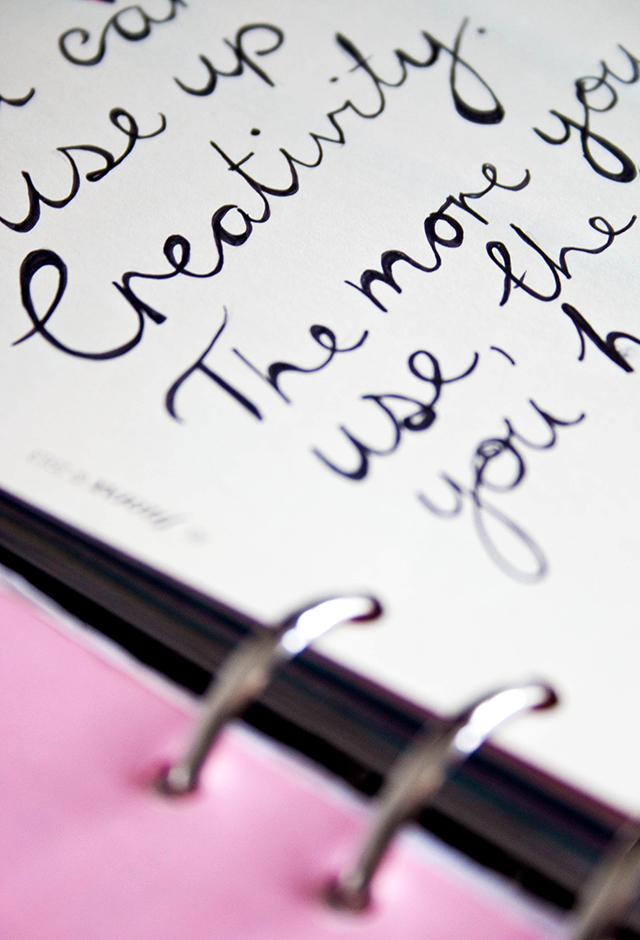 can
use up
Creativity.
The more you
use, the
you h